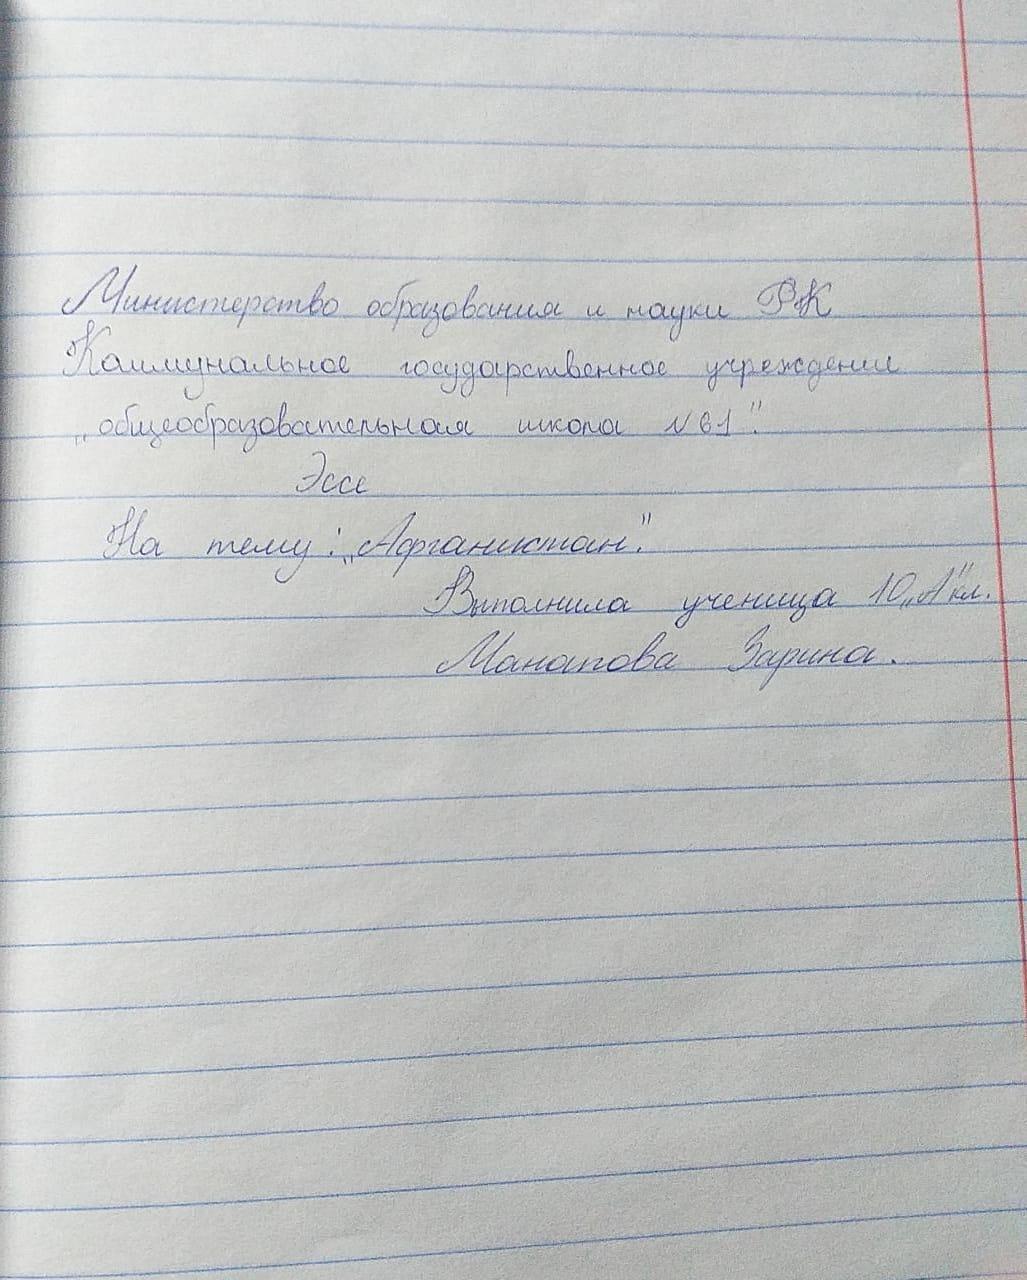 Министерство образования и науки РК
Коммунальное государственное учреждение
„общеобразовательная школа №61".
Эссе
На тему: „Афганистан".
Выполнила ученица 10„А"кл.
Манапова Зарина.